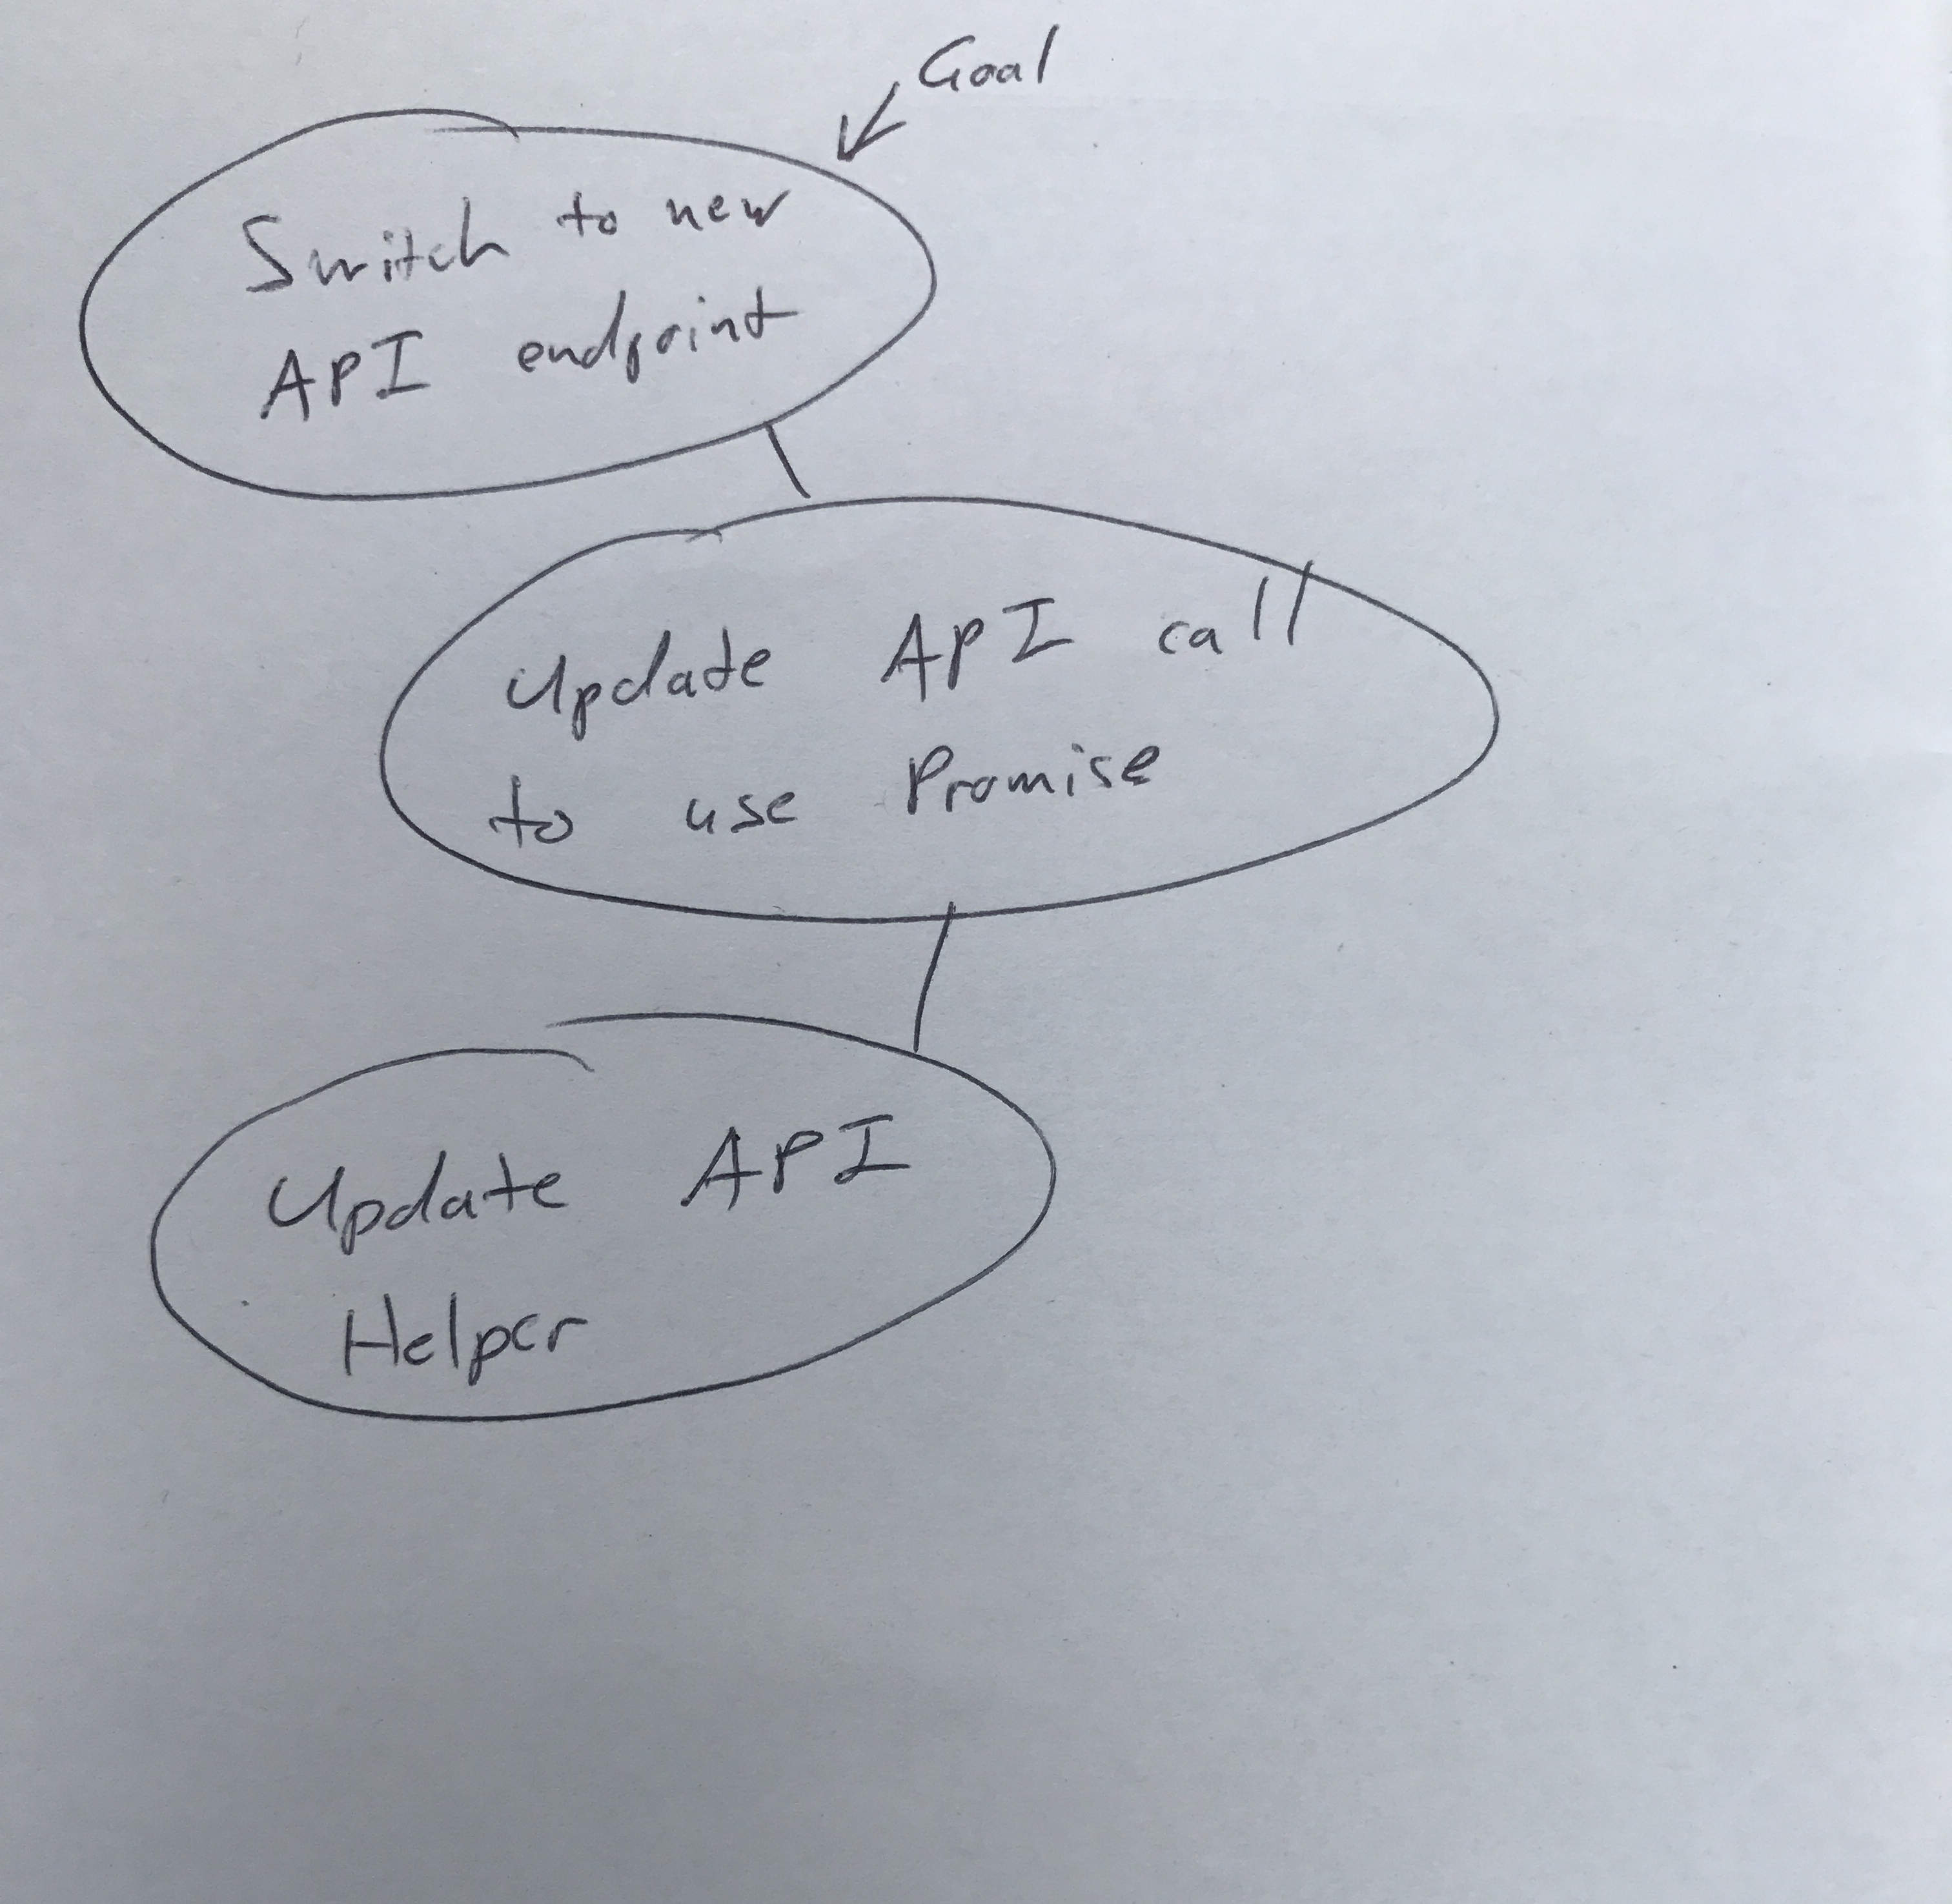 Goal
Switch to new
API endpoint
Update API call
to use Promise
Update API
Helper